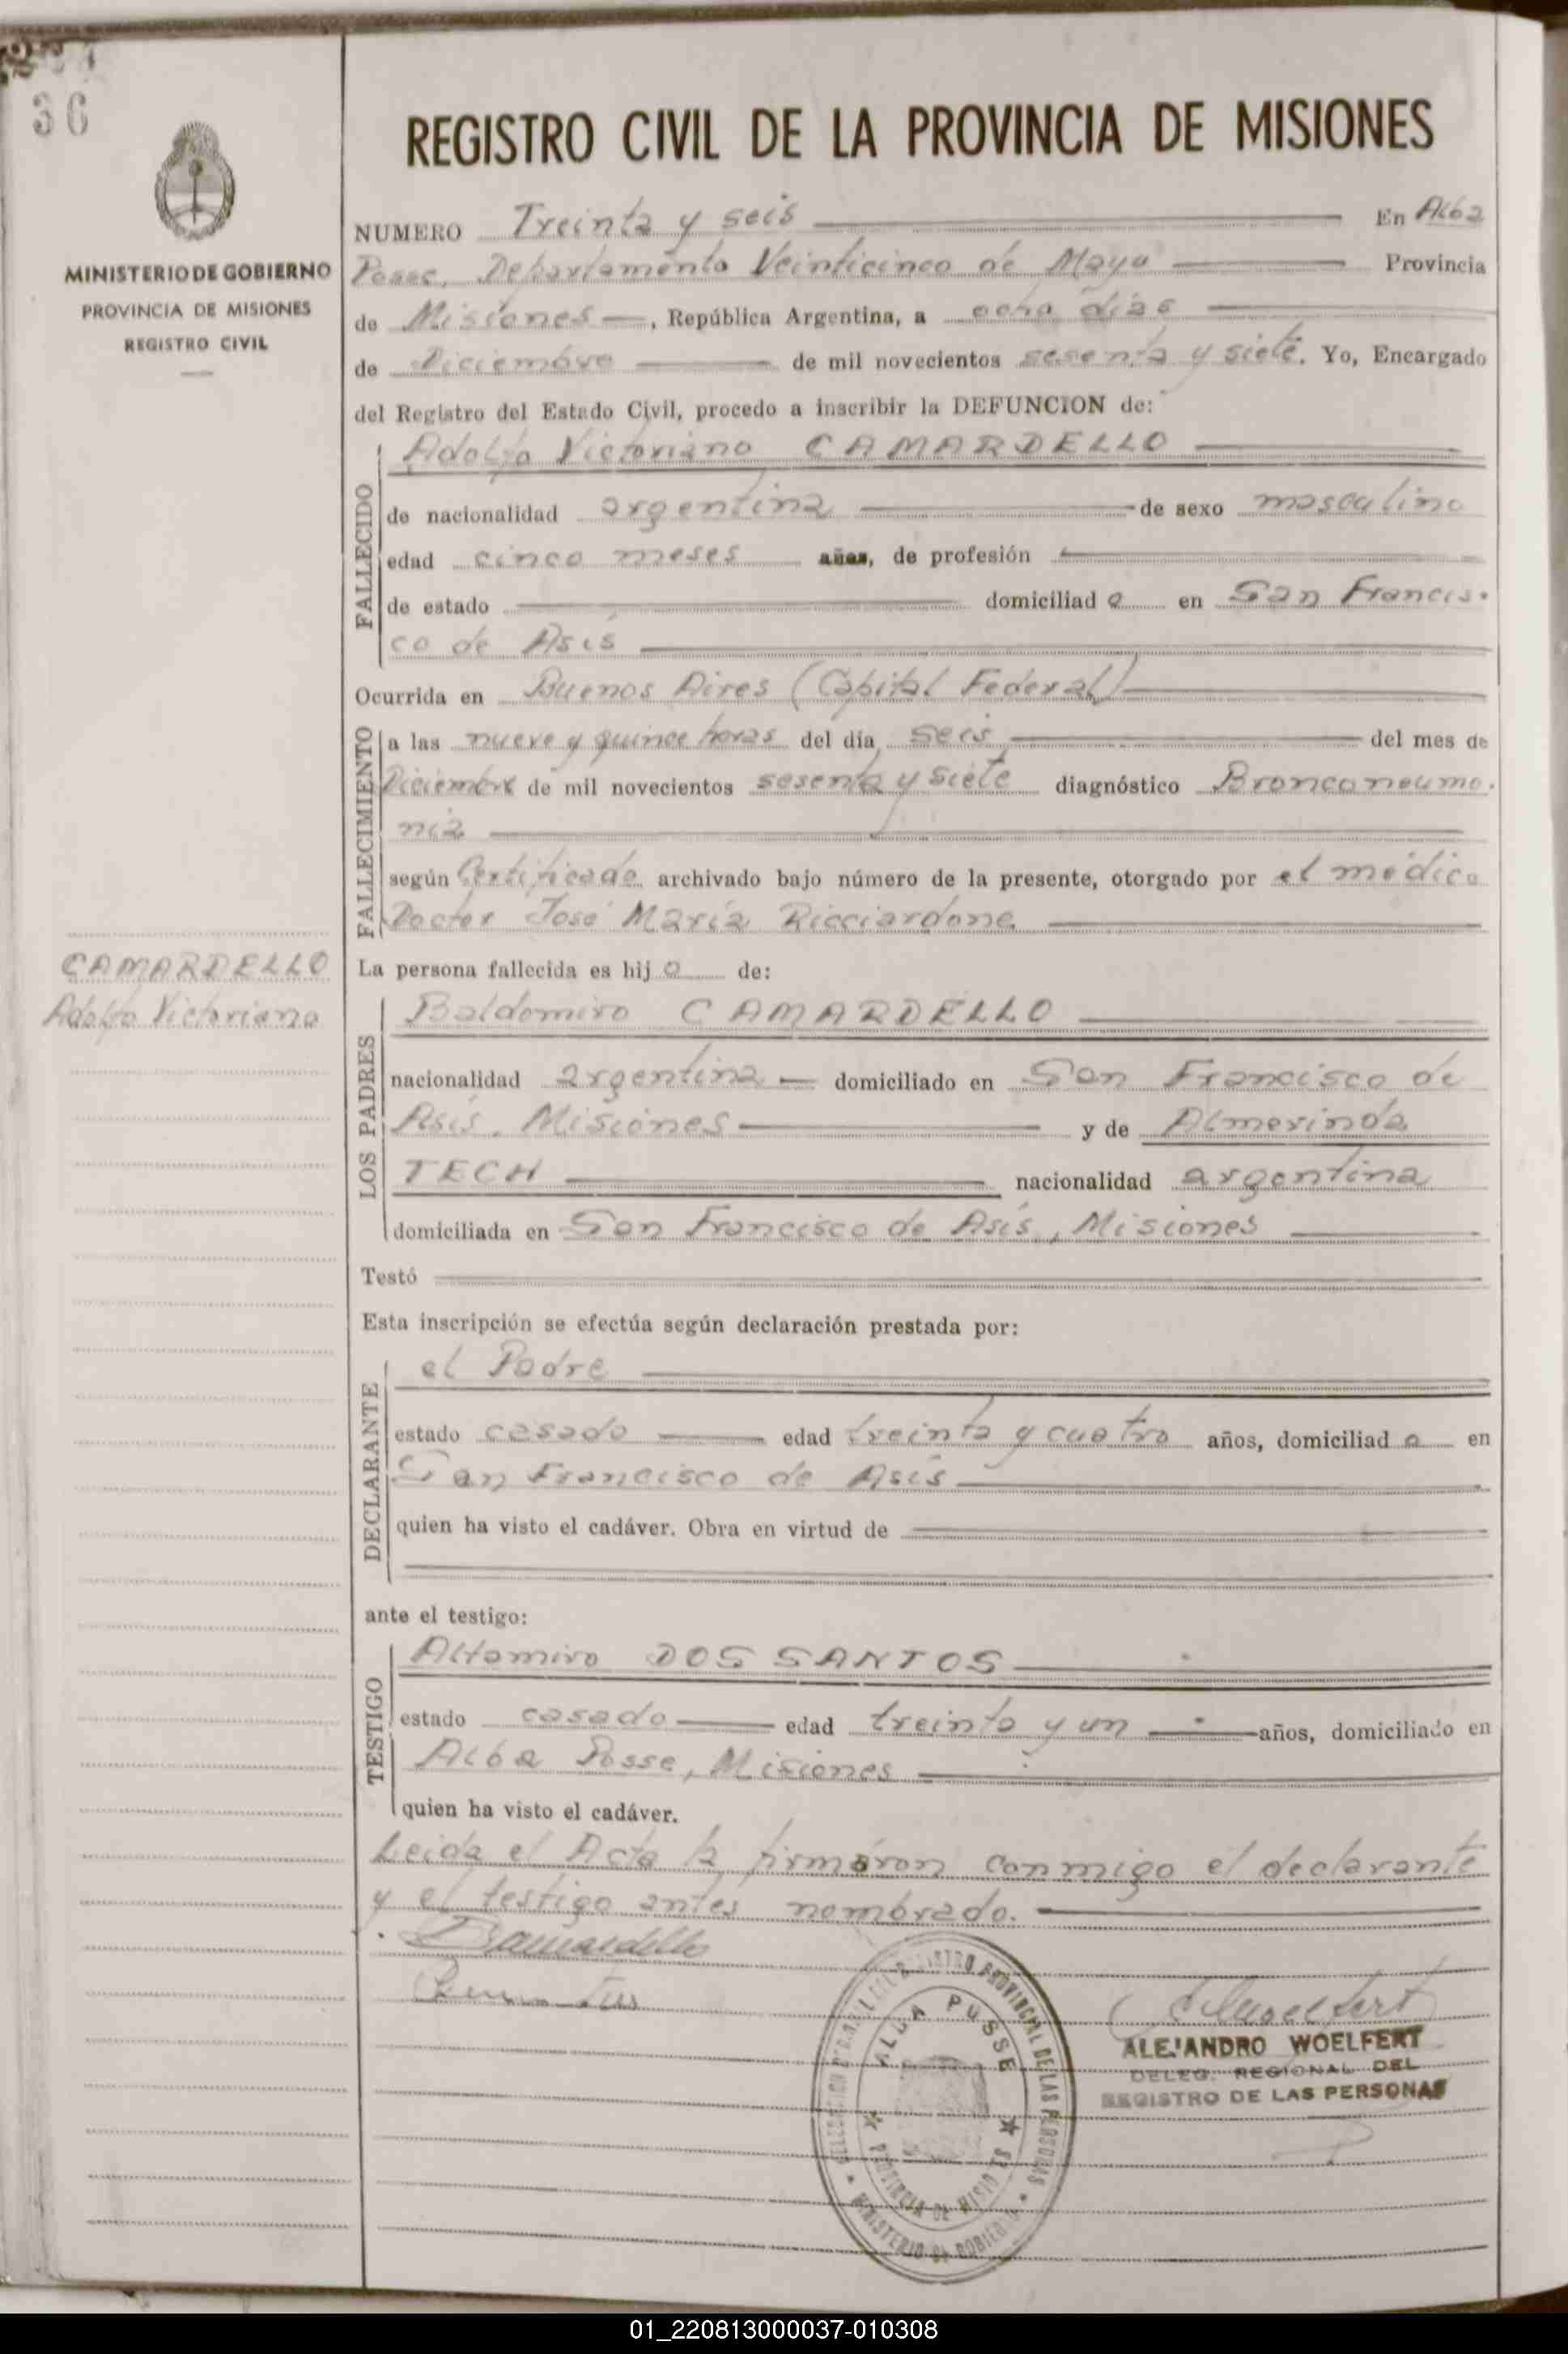 36
MINISTERIO DE GOBIERNO
PROVINCIA DE MISIONES
REGISTRO CIVIL
CAMARDELLO
Adolfo Victoriano
REGISTRO CIVIL DE LA PROVINCIA DE MISIONES
NUMERO Treinta y seis En Alba
Posse, Departamento Veinticinco de Mayo Provincia
de Misiones, República Argentina, a ocho días
de Diciembre de mil novecientos sesenta y siete. Yo, Encargado
del Registro del Estado Civil, procedo a inscribir la DEFUNCION de:
FALLECIDO
Adolfo Victoriano CAMARDELLO
de nacionalidad argentina de sexo masculino
edad cinco meses años, de profesión
de estado domiciliad o en San Francis-
co de Asís
Ocurrida en Buenos Aires (Capital Federal)
FALLECIMIENTO
a las nueve y quince horas del día seis del mes de
Diciembre de mil novecientos sesenta y siete diagnóstico Bronconeumo-
nia
según Certificado archivado bajo número de la presente, otorgado por el médico
Doctor José María Ricciardone
La persona fallecida es hij o de:
LOS PADRES
Baldomiro CAMARDELLO
nacionalidad argentina domiciliado en San Francisco de
Asís, Misiones y de Almerinda
TECH nacionalidad argentina
domiciliada en San Francisco de Asís, Misiones
Testó
Esta inscripción se efectúa según declaración prestada por:
DECLARANTE
el Padre
estado casado edad treinta y cuatro años, domiciliad o en
San Francisco de Asís
quien ha visto el cadáver. Obra en virtud de
ante el testigo:
TESTIGO
Altamiro DOS SANTOS
estado casado edad treinta y un años, domiciliado en
Alba Posse, Misiones
quien ha visto el cadáver.
Leida el Acta la firmaron conmigo el declarante
y el testigo antes nombrado.
BCamardello
ALBA POSSE
PROVINCIA DE MISIONES
REGISTRO PROVINCIAL DE LAS PERSONAS
MINISTERIO DE GOBIERNO
AWoelfert
ALEJANDRO WOELFERT
DELEG. REGIONAL DEL
REGISTRO DE LAS PERSONAS
01_220813000037-010308